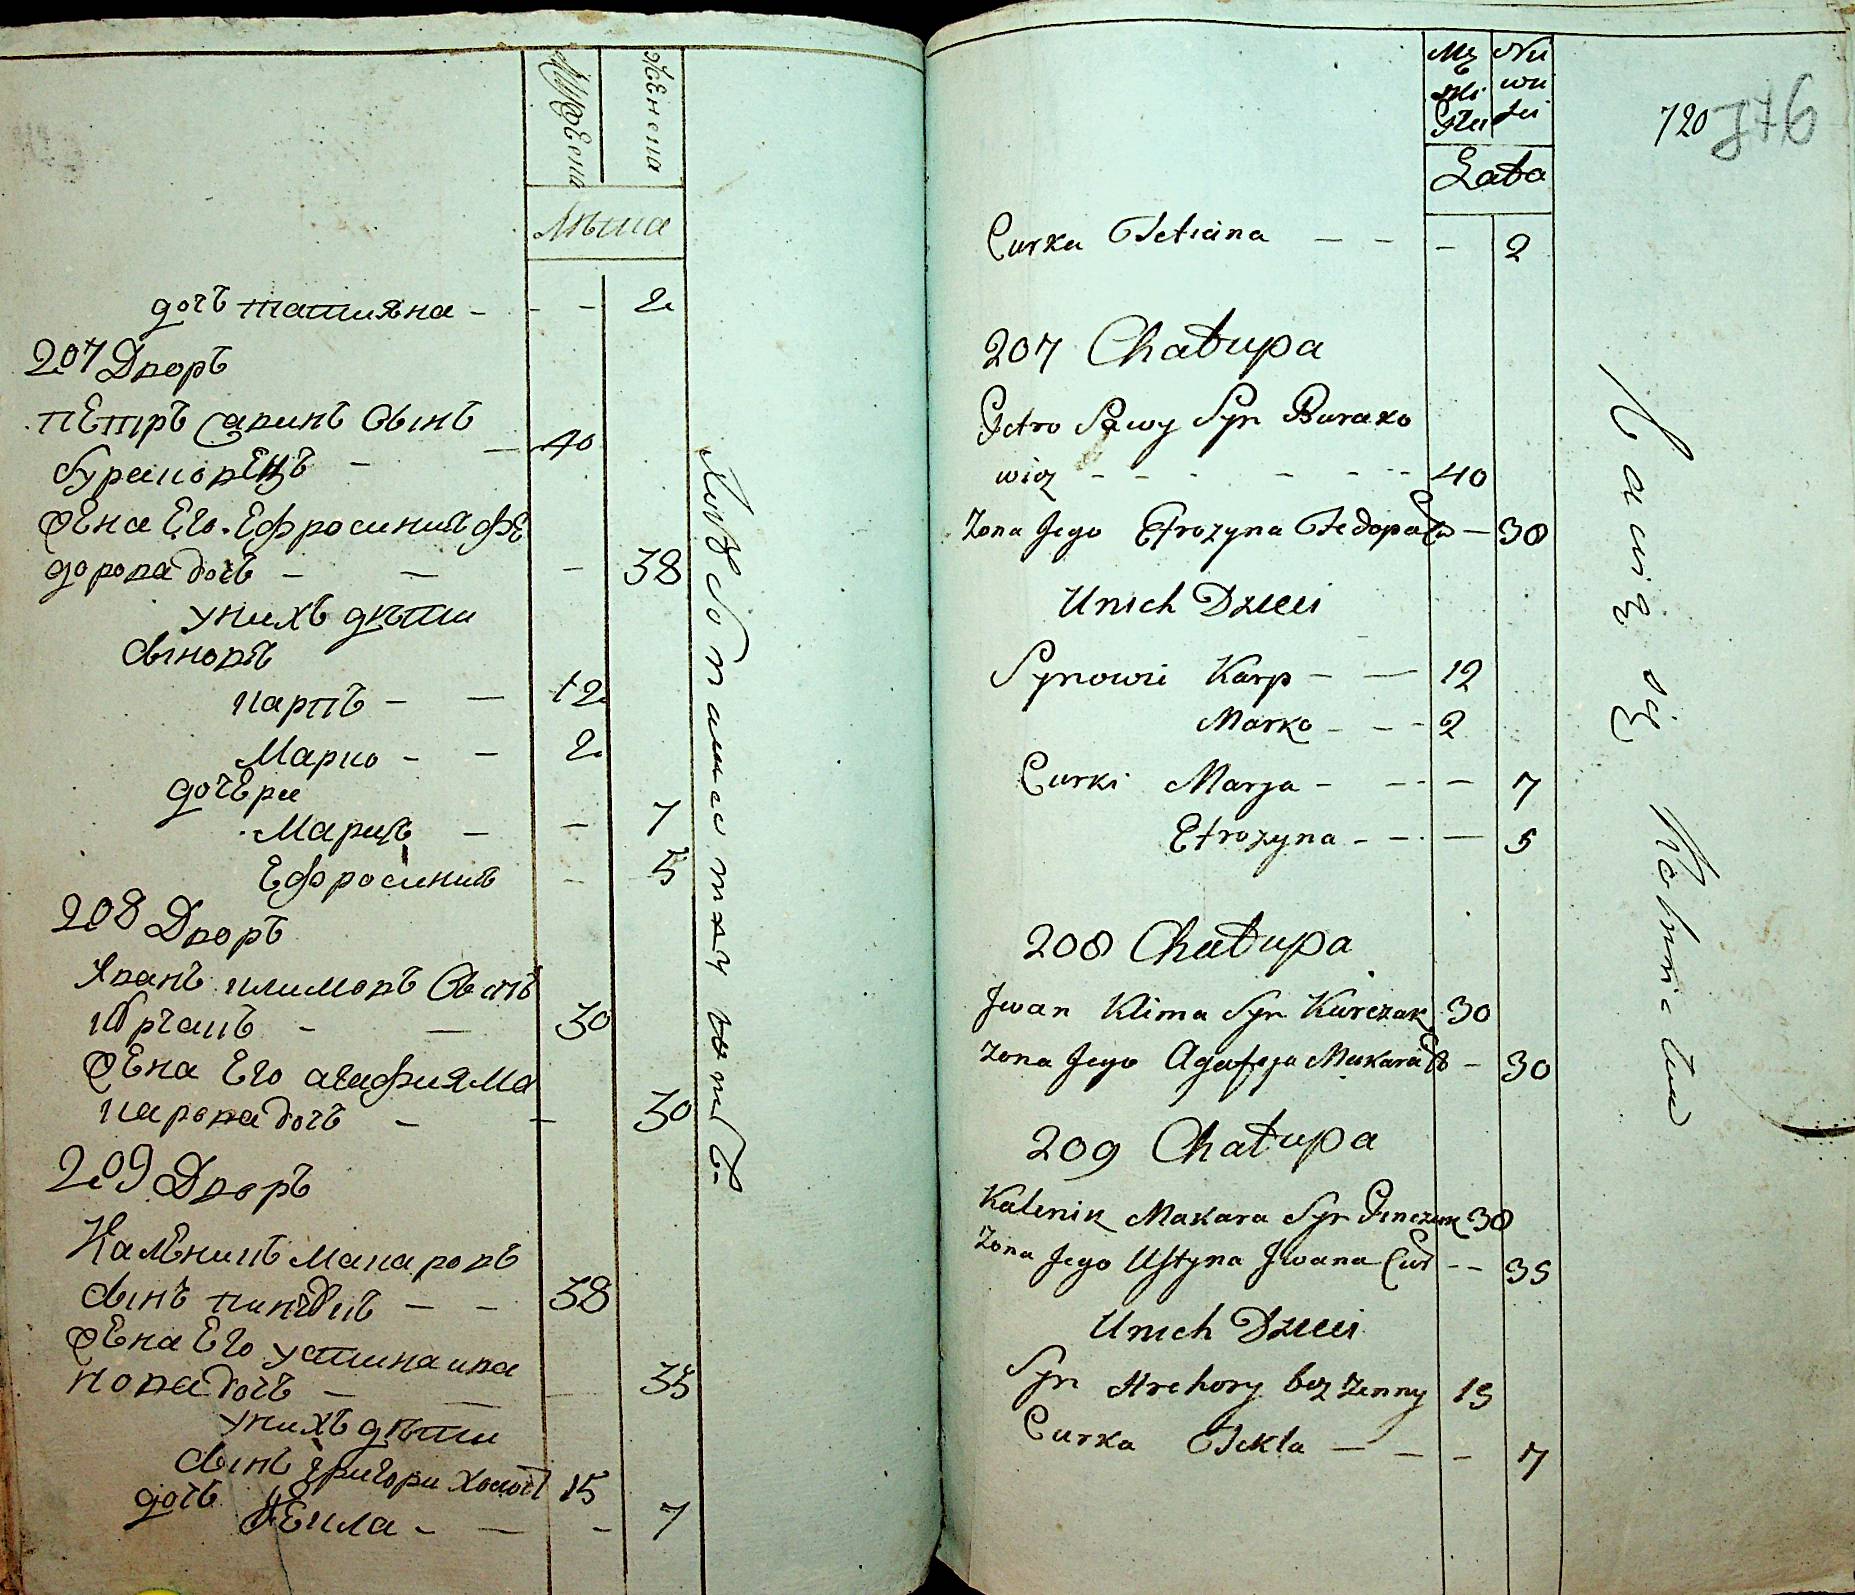 Мужеска
Женска
Лѣта
дочь татияна - - - 2
207 Дворъ
пЕтръ Савинъ Сынъ
бураковЕцъ - - 40
жЕна Его Ефросиния фЕ
дорова дочь - - - 38
уНихъ дѣти
Сыновя
карпъ - - 12
Марко - - 2
дочЕри
Мария - - 7
Ефросиния - 5
208 Дворъ
Иванъ климовъ Сынъ
курчакъ - - 30
жЕна Его агафия Ма
карова дочь - - 30
209 Дворъ
КалЕникъ макаровъ
Сынъ пинчукъ - - 38
жЕна Его устина ива
нова дочь - - 35
уНихъ дѣти
Сынъ григори холостъ 15
дочь
тЕкла - - - 7
Mę Nie
ski wie
Płci sci
Lata
720 776
Curka Tetiana - - - 2
207 Chałupa
Petro Sawy Syn Burako
wicz - - - - - - 40
Zona Jego Efrozyna Fedora Co - 38
Unich Dzieci
Synowie Karp - - 12
Marko - - - 2
Curki Marja - - - 7
Efrozyna - - - 5
208 Chałupa
Jwan Klima Syn Kurczak 30
Zona Jego Agafija Makara Co - 30
209 Chałupa
Kalenik Makara Syn Pinczuk 38
Zona Jego Ustyna Jwana Cur - - 35
Unich Dzieci
Syn Hrehory bez Zenny 15
Curka Tekla - - - 7